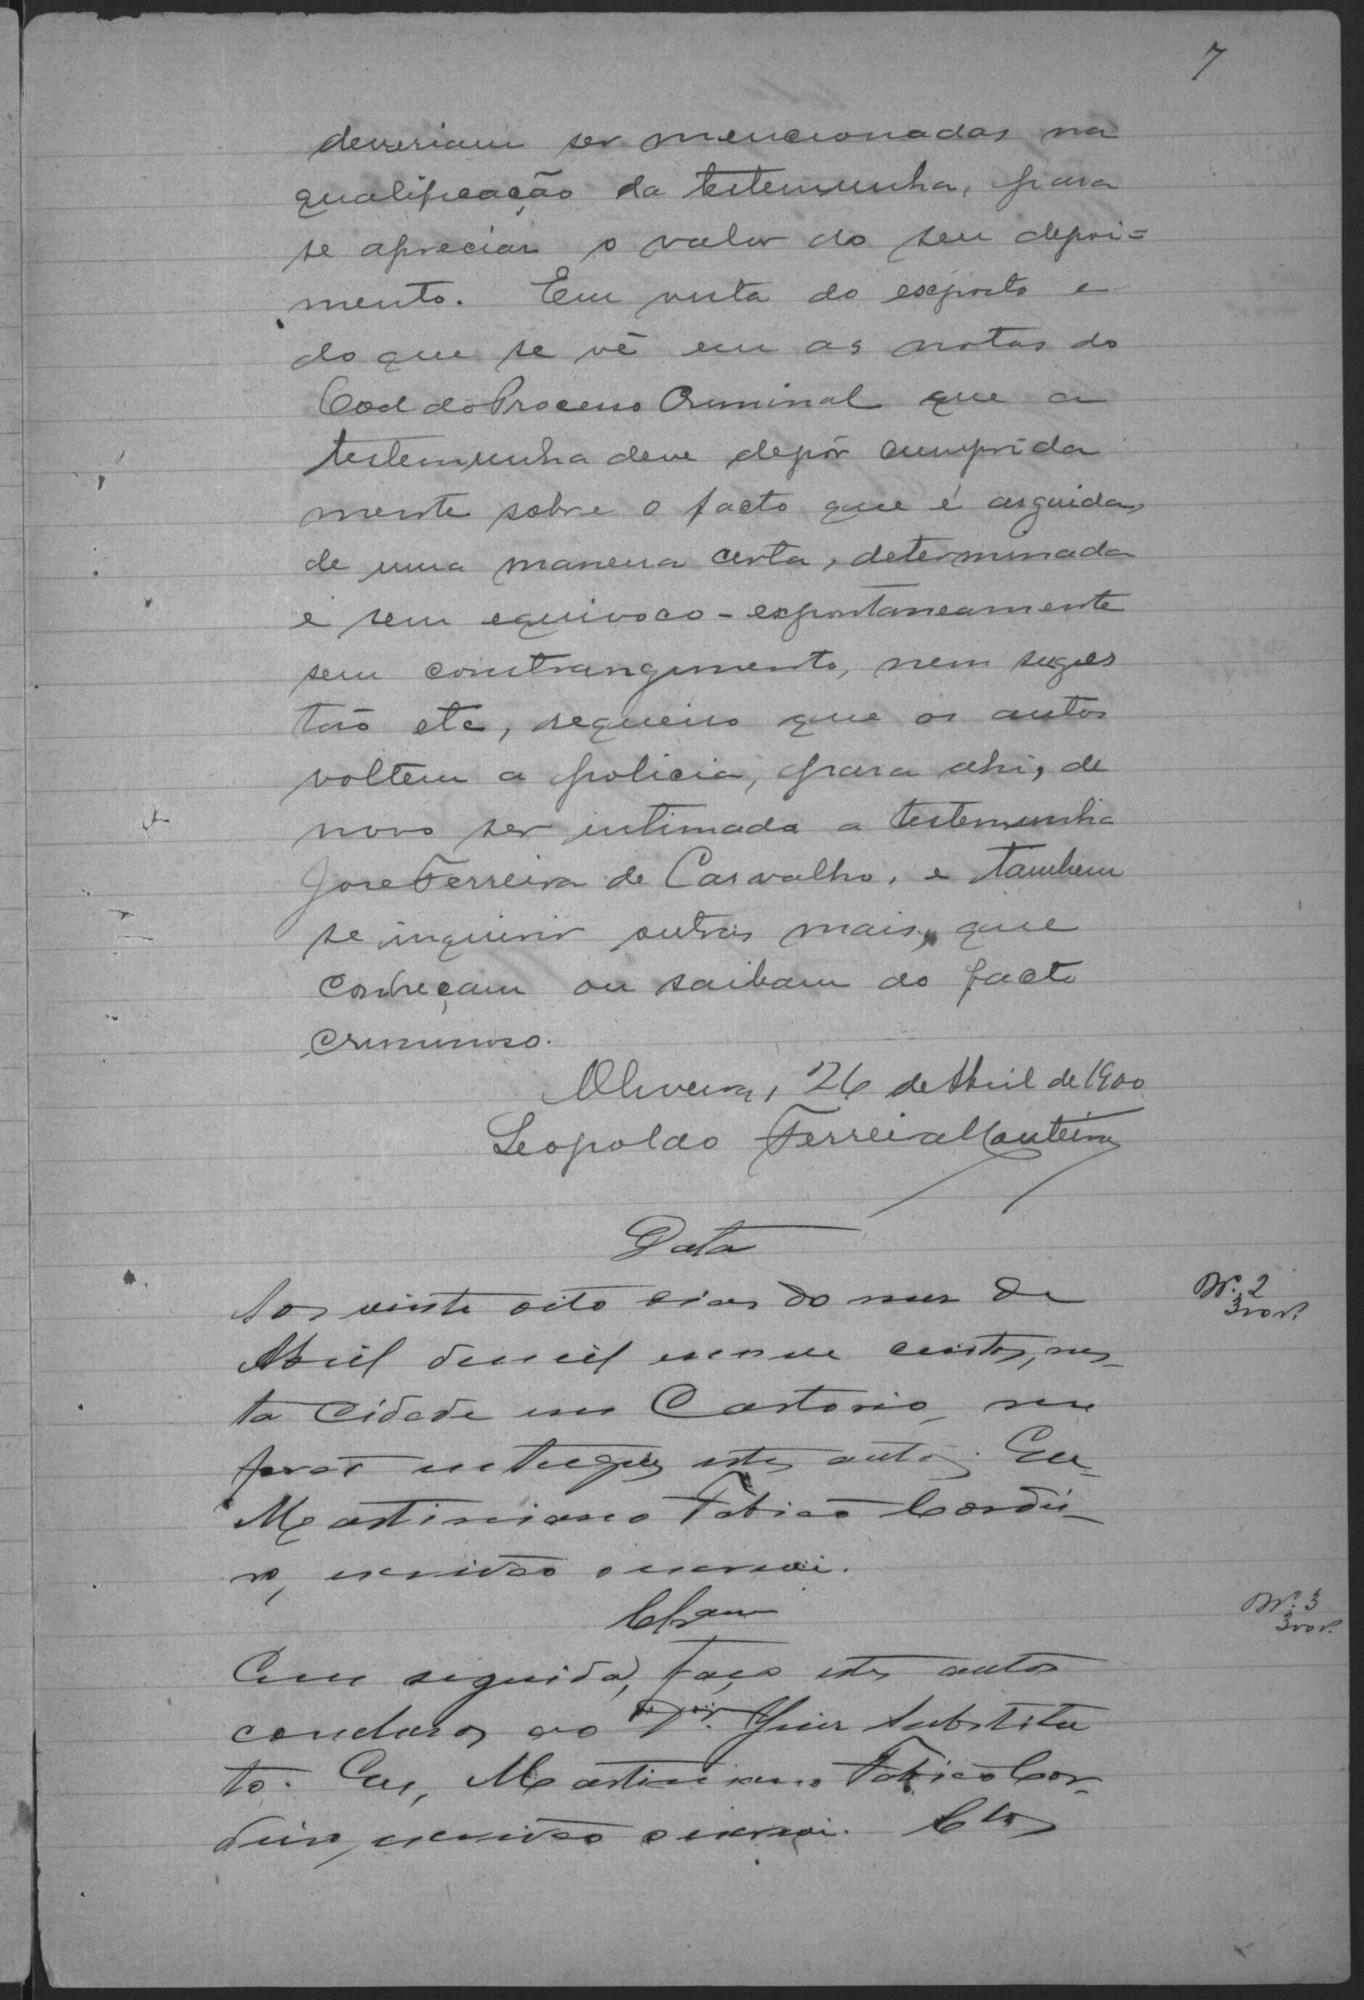 7
deveriam ser mencionadas na
qualificação da testemunha, para
se apreciar o valor do seu depoi=
mento. Em vista do exposto e
do que se vê em as notas do
Cod do Processo Criminal que a
testemunha deve depôr cumprida
mente sobre o facto que é arguida,
de uma maneira certa, determinada
e sem equivoco - expontaneamente
sem constrangimento, nem suges
tão etc, requeiro que os autos
voltem a policia, para ahi, de
novo ser intimada a testemunha
José Ferreira de Carvalho, e tambem
se inquirir outras mais, que
conheçam ou saibam do facto
criminoso.
Oliveira, 26 de Abril de 1900
Leopoldo Ferreira Monteiro
Data
Aos vinte oito dias do mez de
Abril de mil e nove centos, nes-
ta Cidade em Cartorio, me
forão entregues estes autos. Eu
Martiniano Fabião Cordei-
ro, escrivão o escrevi.
Nº. 2
300 r.
Clsam
Em seguida, faço estes autos
conclusos ao Dr. Juiz Substitu
to. Eu, Martiniano Fabião Cor-
deiro, escrivão o escrevi. Clos
Nº. 3
300 r.